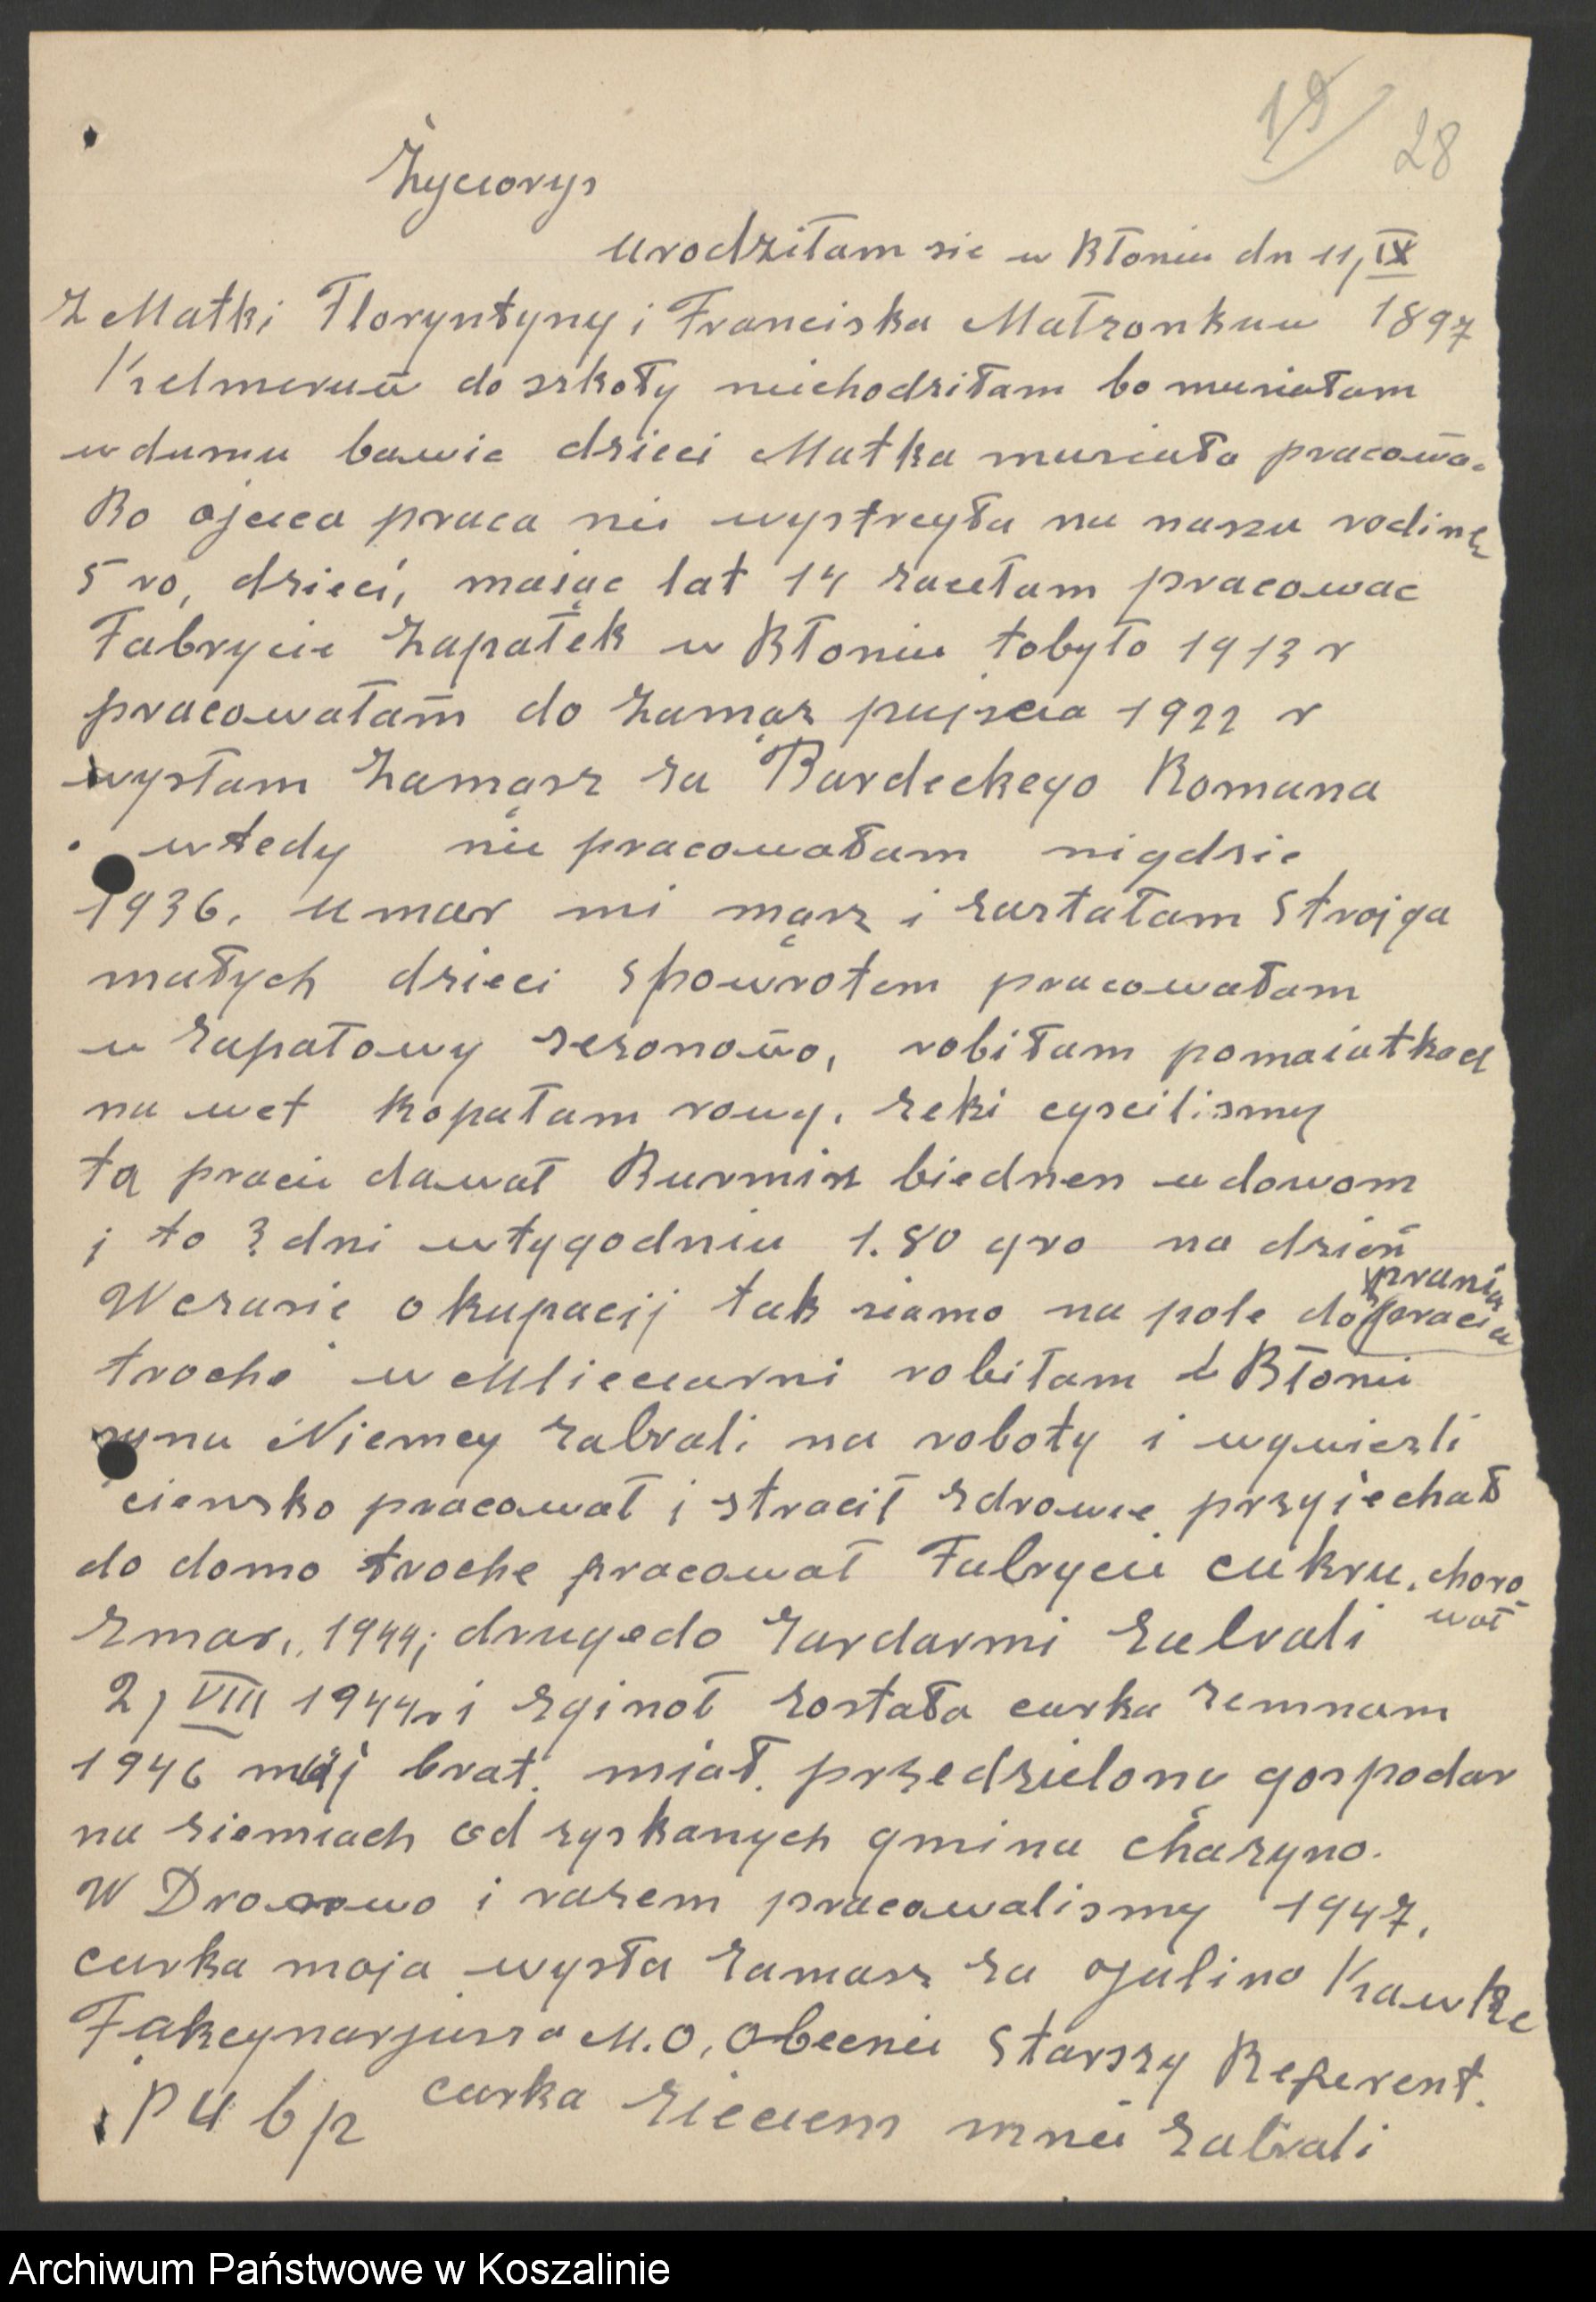 19/ 28
Życiorys
urodziłam sie w Błoniu dn 11, IX
Z Matki Floryntyny i Franciska Małzonkuw 1897
Kelmeruw do szkoły niechodziłam bo musiałam
wdumu bawic dzieci Matka musiała pracowac
Bo ojcca praca nie wystrcyła na nasza rodine
5 ro, dzieci, mając lat 14 zacełam pracowac
Fabrycie Zapałek w Błoniu tobyło 1913 r
pracowałam do zamąz pujscia 1922 r
wysłam zamąsz za Bardeckego Romana
wtedy nie pracowałam nigdzie
1936. umar mi mąsz i zastałam strojga
małych dzieci spowrotem pracowałam
w zapałowy sezonowo, robiłam pomaiatkach
na wet kopałam rowy. zeki cyscilismy
tą pracie dawał Burmisz biednen wdowom
i to 3 dni wtygodniu 1.80 gro na dzień
Wczasie okupacij tak siamo na pole do pracia
prania
troche w Mlieczarni robiłam w Błoniu
syna Niemcy zabrali na roboty i wywiezli
ciensko pracował i stracił zdrowie przyiechał
do domo troche pracował Fabryci cukru. choro
wał
zmar, 1944; drugedo zardarmi zabrali
2, VIII 1944r i zginoł została curka zemnam
1946 mój brat. miał. przedzielone gospodar
na ziemiach od zyskanych gmina charzyno.
W Drozowo i razem pracowalismy 1947.
curka moja wysła zamasz za Julino Kawke
Fąkcynarjusza M.O, Obecnie Starszy Referent.
PUbp curka zieciem mnie zabrali
Archiwum Państwowe w Koszalinie